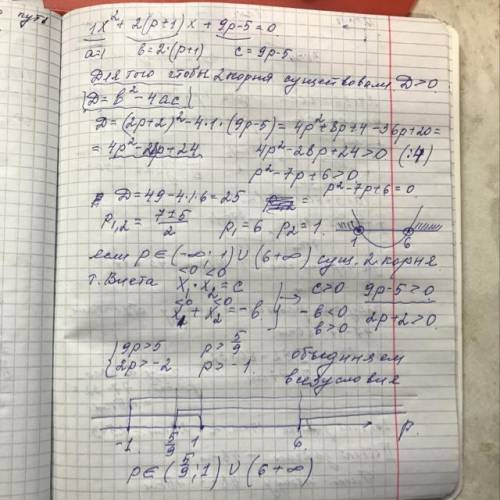 1x² + 2(p+1)x + 9p-5 = 0
a=1 b=2·(p+1) c=9p-5
Для того чтобы 2 корня существовали D>0
D=b²-4ac
D=(2p+2)²-4·1·(9p-5)=4p²+8p+4-36p+20=
=4p²-28p+24 4p²-28p+24>0 (:4)
p²-7p+6>0
p²-7p+6=0
D=49-4·1·6=25
p₁,₂ = (7±5)/2 p₁=6 p₂=1
1 6
если p∈(-∞; 1)∪(6+∞) сущ. 2 корня
<0 <0
т. Виета x₁·x₂=c c>0 9p-5>0
<0 <0
x₁+x₂=-b -b<0 2p+2>0
b>0
{ 9p>5 p>5/9 объединяем
2p>-2 p>-1 все условия
-1 5/9 1 6 p
p∈(5/9; 1)∪(6+∞)